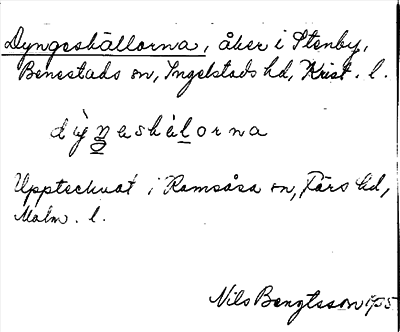 Dyngeshällorna, åker i Stenby,
Benestads sn, Ingelstads hd, Krist. l.
dỳneshälorna
Upptecknat i Ramsåsa sn, Färs hd,
Malm. l.
Nils Bengtsson